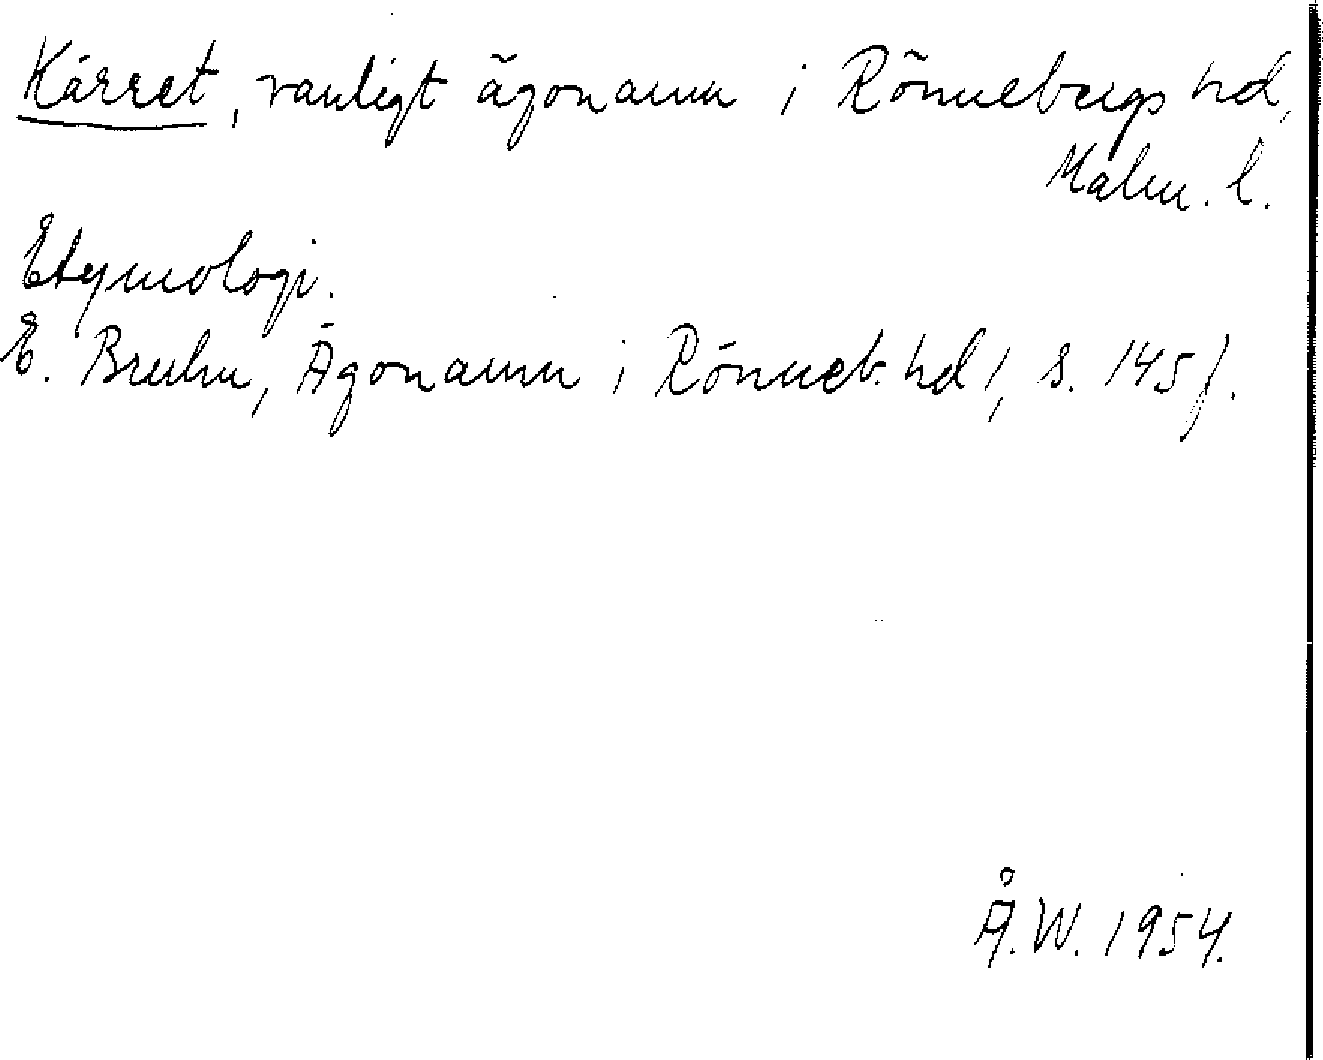 Kärret, vanligt ägonamn i Rönnebergs hd,
Malm. l.
Etymologi.
E. Bruhn, Ägonamn i Rönneb. hd 1, s. 145 f.
Å. W. 1954.